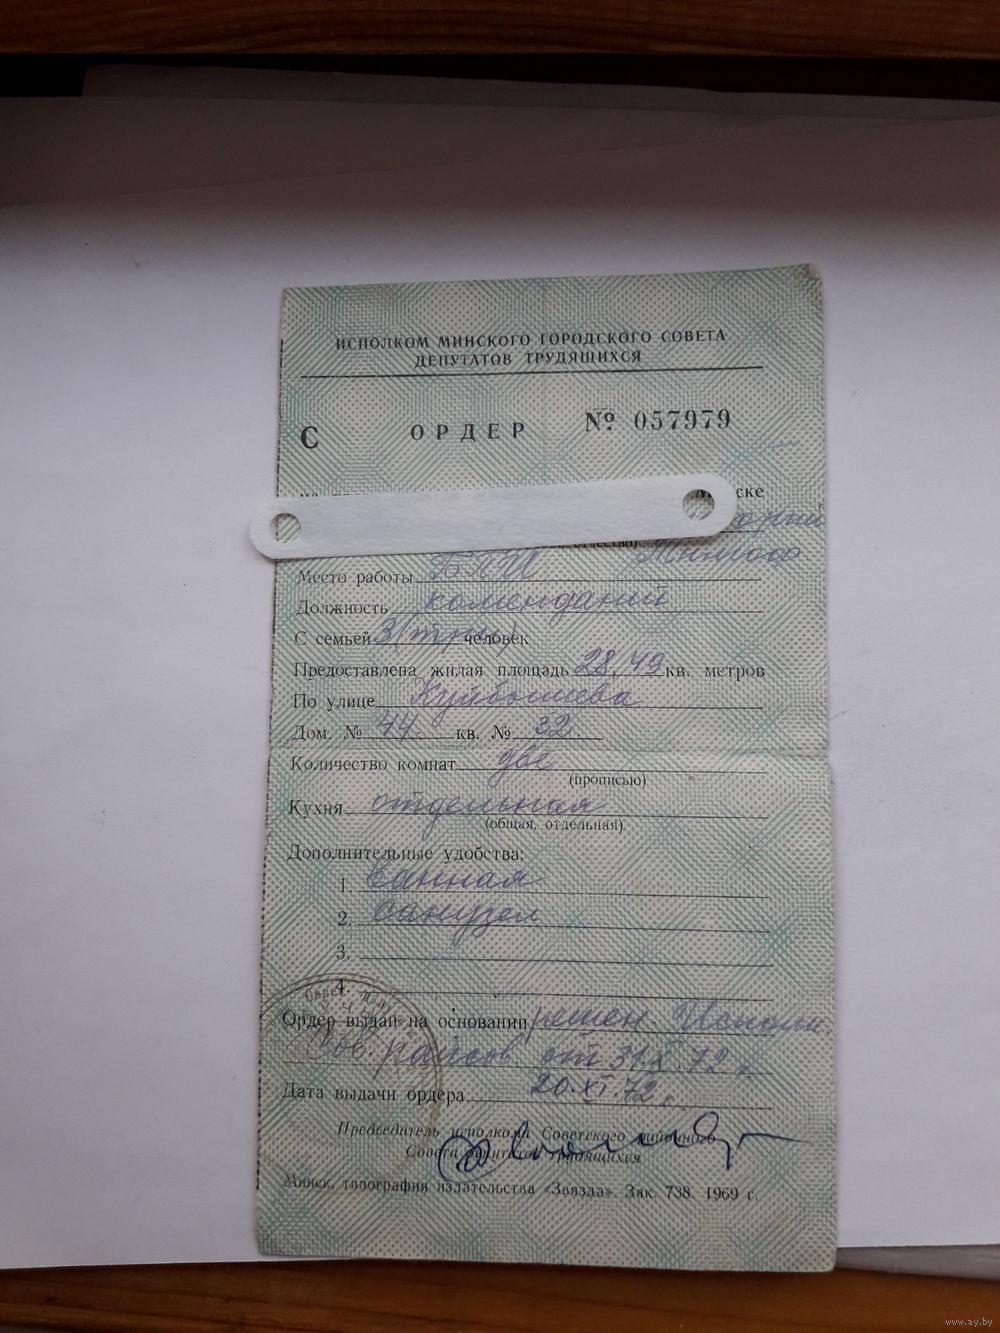 ИСПОЛКОМ МИНСКОГО ГОРОДСКОГО СОВЕТА
ДЕПУТАТОВ ТРУДЯЩИХСЯ
С ОРДЕР № 057979
ске
отчество)
Место работы БПИ
Должность комендант
С семьей 3 (три) человек
Предоставлена жилая площадь 28,49 кв. метров
По улице Куйбышева
Дом. № 44 кв. № 32
Количество комнат две
(прописью)
Кухня отдельная
(общая, отдельная)
Дополнительные удобства:
1. Ванная
2. Санузел
3.
4.
Ордер выдан на основании решен. Исполк
Сов. райсов от 31.X.72 г.
Дата выдачи ордера 20.XI.72 г.
Председатель исполкома Советского районного
Совета депутатов трудящихся
Минск, типография издательства «Звязда». Зак. 738. 1969 г.
www.ay.by